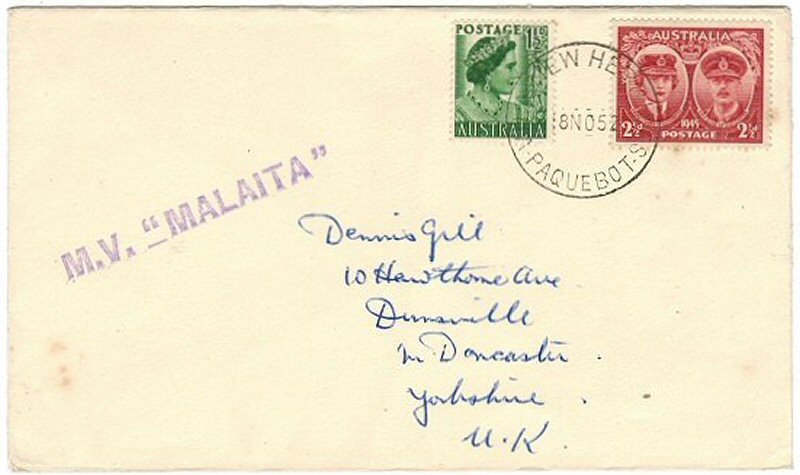 POSTAGE
1½D
AUSTRALIA
AUSTRALIA
1945
2½D POSTAGE 2½D
NEW HE
8NO52
PAQUEBOT-S
M.V. "MALAITA"
Dennis Gill
10 Hawthorne Ave
Dunsville
nr Doncaster.
Yorkshire.
U.K.